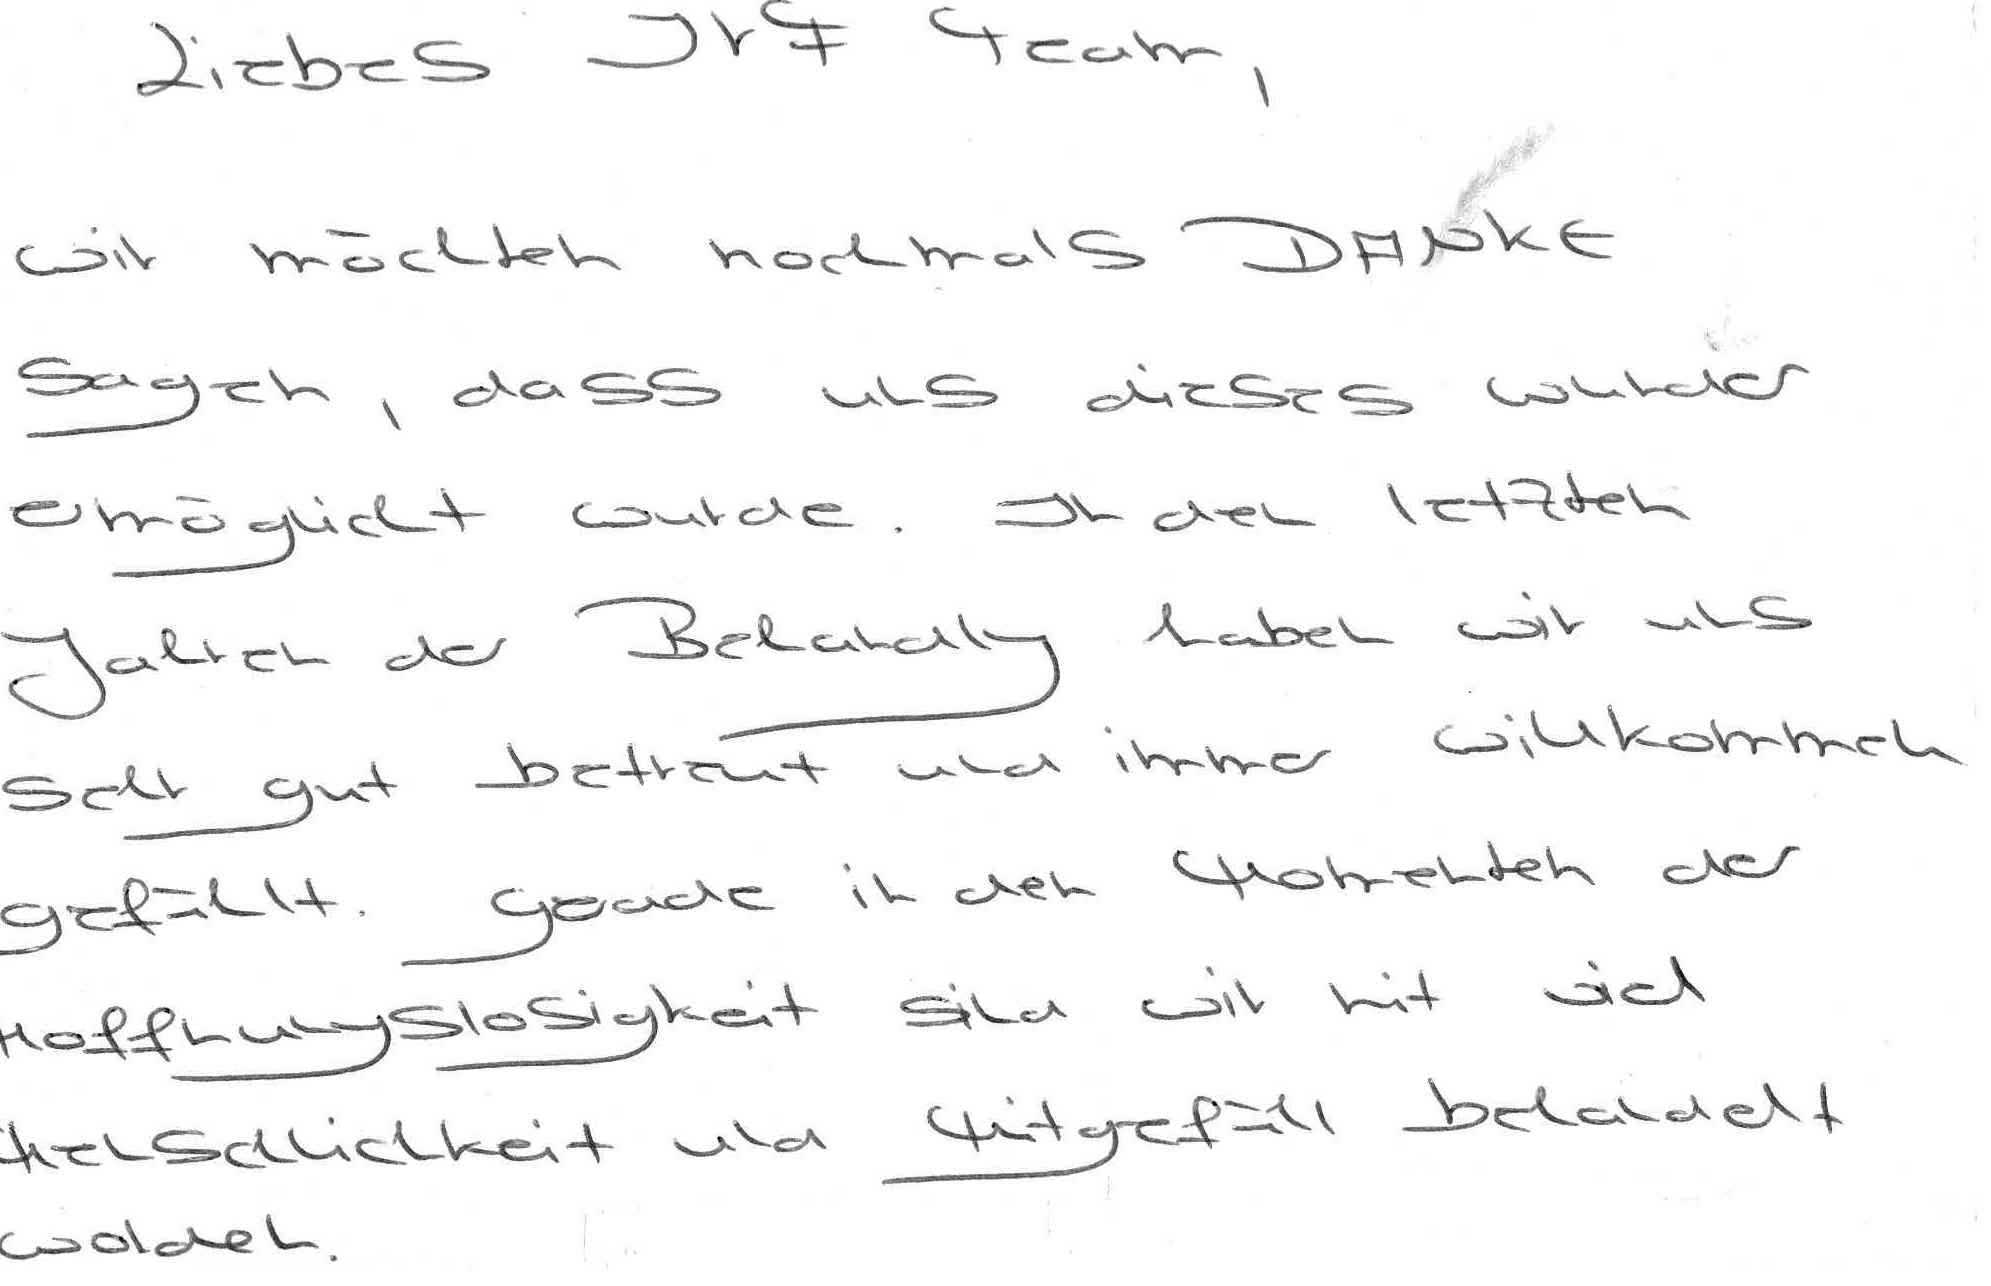 Liebes IVF Team,
wir möchten nochmals DANKE
sagen, dass uns dieses wunder
ermöglicht wurde. In den letzten
Jahren der Behandlung haben wir uns
sehr gut betreut und immer willkommen
gefühlt. Gerade in den Momenten der
Hoffnungslosigkeit sind wir mit viel
Menschlichkeit und Mitgefühl behandelt
worden.